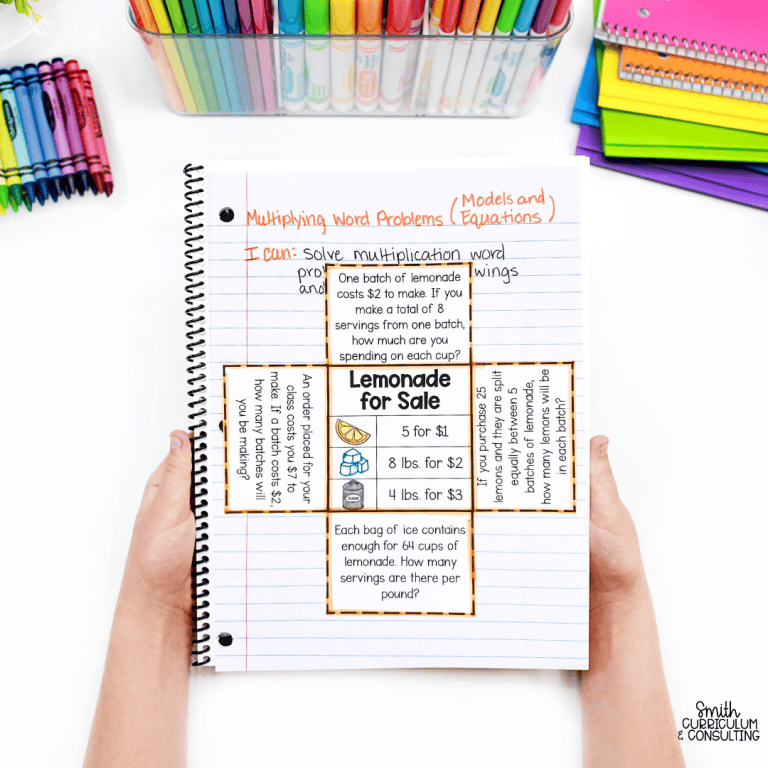 Multiplying Word Problems (Models and
Equations)
I can: Solve multiplication word
wings
and
One batch of lemonade
costs $2 to make. If you
make a total of 8
servings from one batch,
how much are you
spending on each cup?
An order placed for your
class costs you $7 to
make. If a batch costs $2,
how many batches will
you be making?
Lemonade
for Sale
5 for $1
8 lbs. for $2
SUGAR
4 lbs. for $3
If you purchase 25
lemons and they are split
equally between 5
batches of lemonade,
how many lemons will be
in each batch?
Each bag of ice contains
enough for 64 cups of
lemonade. How many
servings are there per
pound?
Smith
CURRICULUM
& CONSULTING